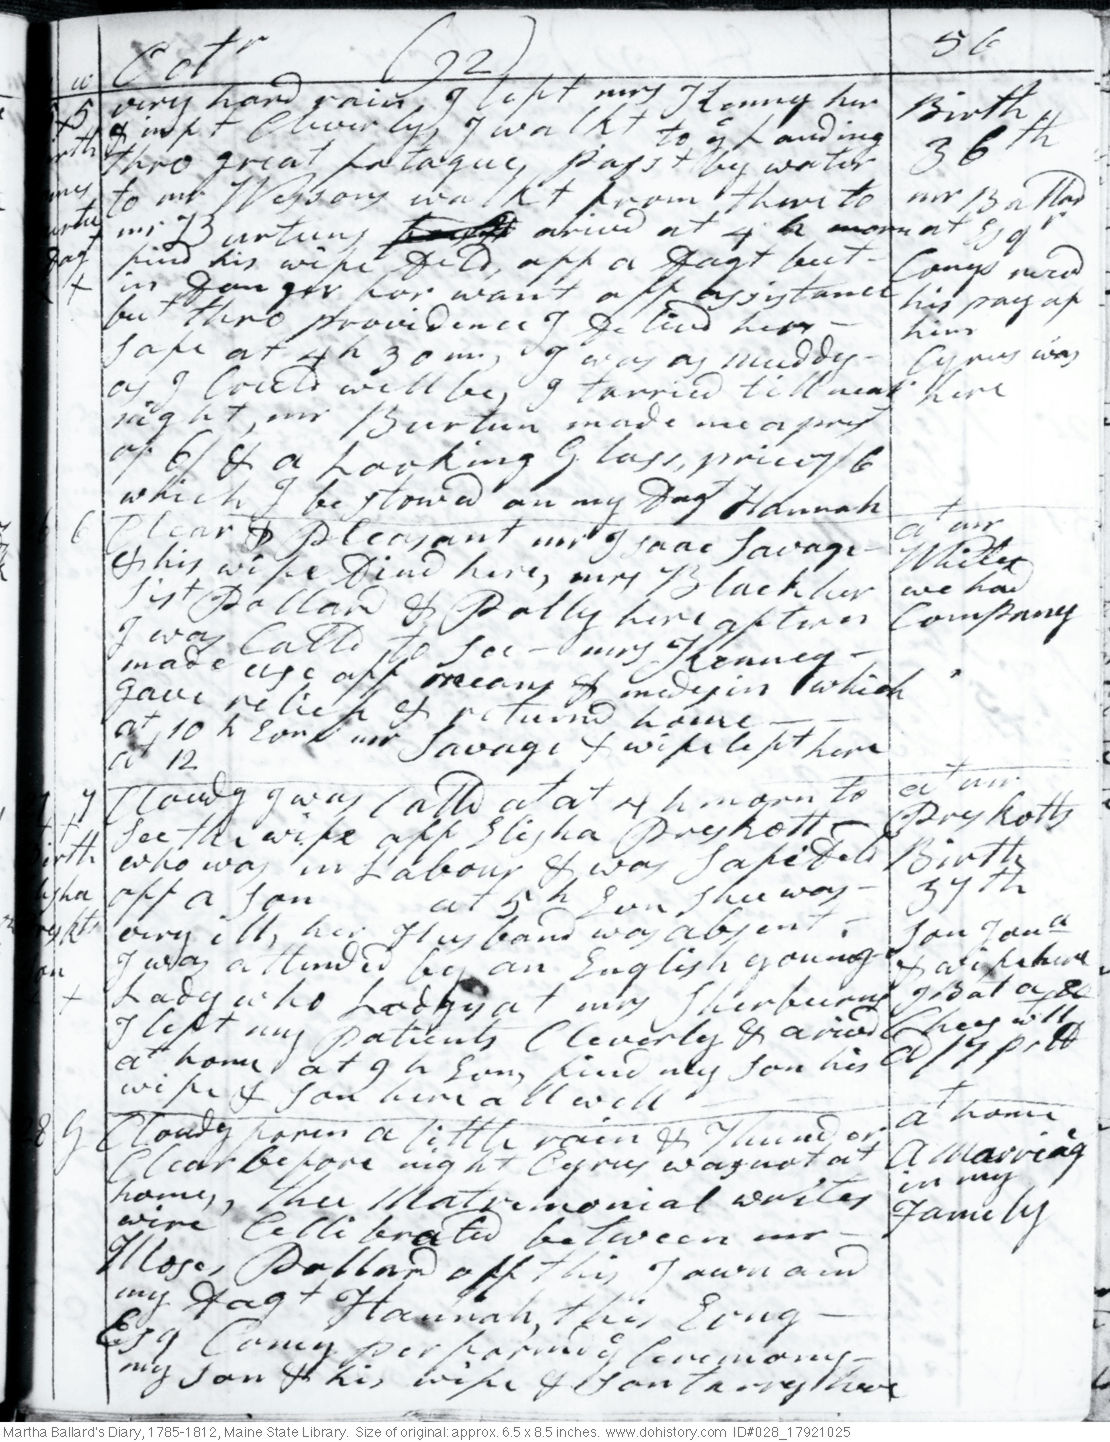 Octr (92) 56
5 5 very hard rain, I left mrs Kenny her
& inft Cleverly, I walkt to ye Landing
thro great fatague, Past by water
to mr Wessons walkt from there to
mr Burtuns arived at 4 h morn
find his wife Deld, off a Dagt but
in Danger for want off assistance
but thro providence I Relievd her
safe at 4 h 30 mn, I was as muddy
as I Could well be, I tarried till near
night, mr Burtun made me a prest
of 6/ & a Looking Glass, price 1/6
which I bestowed on my Dagt Hannah
Birth
36th
mr Ballad
at Esqr
Conys recd
his pay of
him
Cyrus was
here
6 6 Clear & Pleasant mr Isaac Savage
& his wife Dind here, mrs Black her
Sist Pollard & Polly here aftern
I was Calld to see mrs Kenney
made use off means & medisin which
gave relief & returnd home
at 10 h Evn mr Savage & wife left here
at 12
at mr
Whites
we had
Company
7 7 Cloudy I was Calld at at 4 h morn to
see the wife off Elisha Preskott
who was in Labour & was safe Deld
off a son at 5 h Evn shee was
very ill, her Husband was absent
I was attended by an English young
Lady who Lodgs at mrs Sherburns
I left my patients Cleverly & arivd
at home at 9 h Evn, find my son his
wife & son here all well
at mr
Preskotts
Birth
37th
son Jona
& wife here
8 G Cloudy foren a little rain & Thunder
Clear before night Cyrus was not at
home, thee Matrimonial writes
wire Cellibrated between mr
Moses Pollard off this Town and
my Dagt Hannah, this Evng
Esq Cony performing Ceremony
my son & his wife & son tarry here
at home
A marriag
in my
Family
Martha Ballard's Diary, 1785-1812, Maine State Library. Size of original: approx. 6.5 x 8.5 inches. www.dohistory.com ID#028_17921025